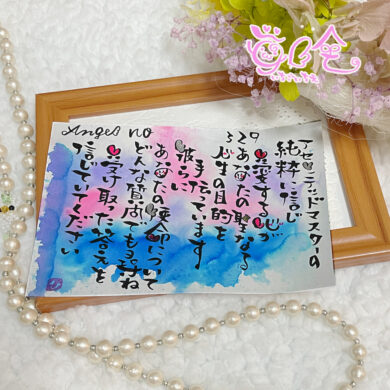 Angel no
アセンテッドマスターの
純粋に信じ
愛する心が
あなたの聖なる
人生の目的を
手伝っています
彼らに
あなたの使命について
どんな質問でも尋ね
受け取った答えを
信じていてください